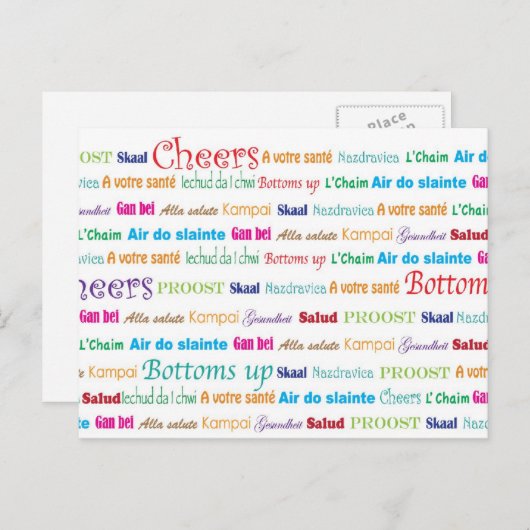 Place
PROOST Skaal Cheers A votre santé Nazdravica L'Chaim Air do slainte
A votre santé Iechud da I chwi Bottoms up L'Chaim Air do slainte Gan
Gesundheit Gan bei Alla salute Kampai Skaal Nazdravica A votre santé L'Chaim
L'Chaim Air do slainte Gan bei Alla salute Kampai Gesundheit Salud
A votre santé Iechud da I chwi Bottoms up L'Chaim Air do slainte
heers PROOST Skaal Nazdravica A votre santé Bottoms
Gan bei Alla salute Kampai Gesundheit Salud PROOST Skaal
L'Chaim Air do slainte Gan bei Alla salute Kampai Gesundheit
Kampai Bottoms up Nazdravica PROOST A vot
Salud Iechud da I chwi A votre santé Air do slainte Cheers L'Chaim Gan
Gan bei Alla salute Kampai Gesundheit Salud PROOST Skaal